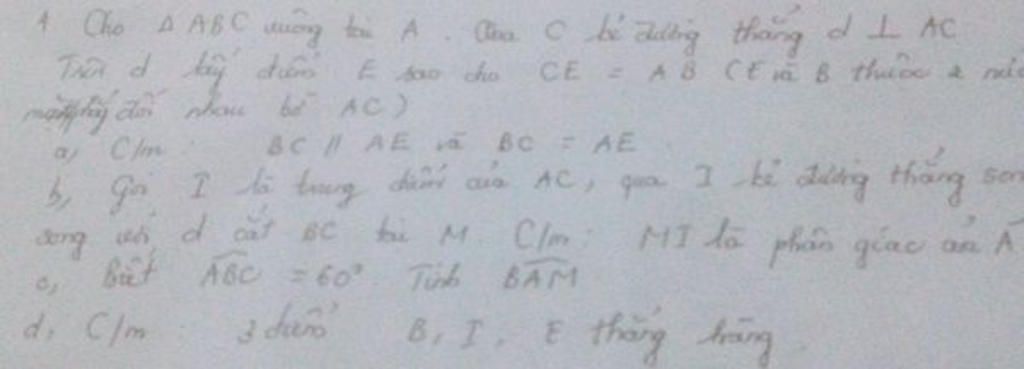 4 Cho Δ ABC vuông tại A. Qua C kẻ đường thẳng d ⊥ AC
Trên d lấy điểm E sao cho CE = AB (E và B thuộc 2 nửa
mặt phẳng đối nhau bờ AC)
a, C/m: BC // AE và BC = AE
b, Gọi I là trung điểm của AC, qua I kẻ đường thẳng song
song với d cắt BC tại M. C/m: MI là phân giác của
c, Biết ABC = 60° Tính BAM
d, C/m: 3 điểm B, I, E thẳng hàng